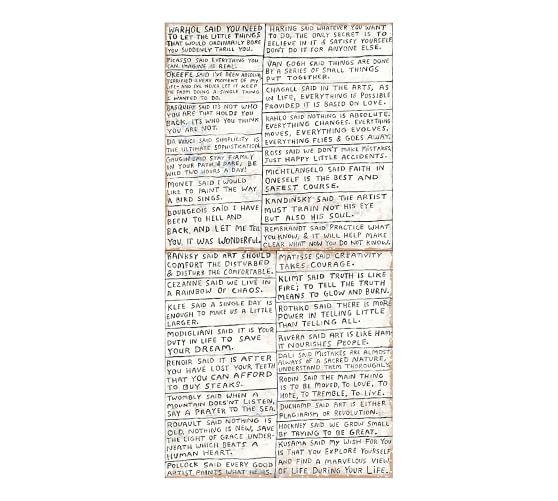 WARHOL SAID YOU NEED
TO LET THE LITTLE THINGS
THAT WOULD ORDINARILY BORE
YOU SUDDENLY THRILL YOU.
PICASSO SAID EVERYTHING YOU
CAN IMAGINE IS REAL.
OKEEFE SAID I'VE BEEN ABSOLUTELY
TERRIFIED EVERY MOMENT OF MY
LIFE- AND I'VE NEVER LET IT KEEP
ME FROM DOING A SINGLE THING
I WANTED TO DO.
BASQUIAT SAID IT'S NOT WHO
YOU ARE THAT HOLDS YOU
BACK, IT'S WHO YOU THINK
YOU ARE NOT.
DA VINCI SAID SIMPLICITY IS
THE ULTIMATE SOPHISTICATION.
GAUGIN SAID STAY FIRMLY
IN YOUR PATH & DARE; BE
WILD TWO HOURS A DAY!
MONET SAID I WOULD
LIKE TO PAINT THE WAY
A BIRD SINGS.
BOURGEOIS SAID I HAVE
BEEN TO HELL AND
BACK, AND LET ME TELL
YOU, IT WAS WONDERFUL.
HARING SAID WHATEVER YOU WANT
TO DO, THE ONLY SECRET IS TO
BELIEVE IN IT & SATISFY YOURSELF.
DON'T DO IT FOR ANYONE ELSE.
VAN GOGH SAID THINGS ARE DONE
BY A SERIES OF SMALL THINGS
PUT TOGETHER.
CHAGALL SAID IN THE ARTS, AS
IN LIFE, EVERYTHING IS POSSIBLE
PROVIDED IT IS BASED ON LOVE.
KAHLO SAID NOTHING IS ABSOLUTE.
EVERYTHING CHANGES. EVERYTHING
MOVES, EVERYTHING EVOLVES,
EVERYTHING FLIES & GOES AWAY.
ROSS SAID WE DON'T MAKE MISTAKES,
JUST HAPPY LITTLE ACCIDENTS.
MICHELANGELO SAID FAITH IN
ONESELF IS THE BEST AND
SAFEST COURSE.
KANDINSKY SAID THE ARTIST
MUST TRAIN NOT HIS EYE
BUT ALSO HIS SOUL.
REMBRANDT SAID PRACTICE WHAT
YOU KNOW, & IT WILL HELP MAKE
CLEAR WHAT NOW YOU DO NOT KNOW.
BANKSY SAID ART SHOULD
COMFORT THE DISTURBED
& DISTURB THE COMFORTABLE.
CEZANNE SAID WE LIVE IN
A RAINBOW OF CHAOS.
KLEE SAID A SINGLE DAY IS
ENOUGH TO MAKE US A LITTLE
LARGER.
MODIGLIANI SAID IT IS YOUR
DUTY IN LIFE TO SAVE
YOUR DREAM.
RENOIR SAID IT IS AFTER
YOU HAVE LOST YOUR TEETH
THAT YOU CAN AFFORD
TO BUY STEAKS.
TWOMBLY SAID WHEN A
MOUNTAIN DOESN'T LISTEN,
SAY A PRAYER TO THE SEA.
ROUAULT SAID NOTHING IS
OLD, NOTHING IS NEW, SAVE
THE LIGHT OF GRACE UNDER-
NEATH WHICH BEATS A
HUMAN HEART.
POLLOCK SAID EVERY GOOD
ARTIST PAINTS WHAT HE IS.
MATISSE SAID CREATIVITY
TAKES COURAGE.
KLIMT SAID TRUTH IS LIKE
FIRE; TO TELL THE TRUTH
MEANS TO GLOW AND BURN.
ROTHKO SAID THERE IS MORE
POWER IN TELLING LITTLE
THAN TELLING ALL.
RIVERA SAID ART IS LIKE HAM-
IT NOURISHES PEOPLE.
DALI SAID MISTAKES ARE ALMOST
ALWAYS OF A SACRED NATURE,
UNDERSTAND THEM THOROUGHLY.
RODIN SAID THE MAIN THING
IS TO BE MOVED, TO LOVE, TO
HOPE, TO TREMBLE, TO LIVE.
DUCHAMP SAID ART IS EITHER
PLAGIARISM OR REVOLUTION.
HOCKNEY SAID WE GROW SMALL
BY TRYING TO BE GREAT.
KUSAMA SAID MY WISH FOR YOU
IS THAT YOU EXPLORE YOURSELF
AND FIND A MARVELOUS VIEW
OF LIFE DURING YOUR LIFE.